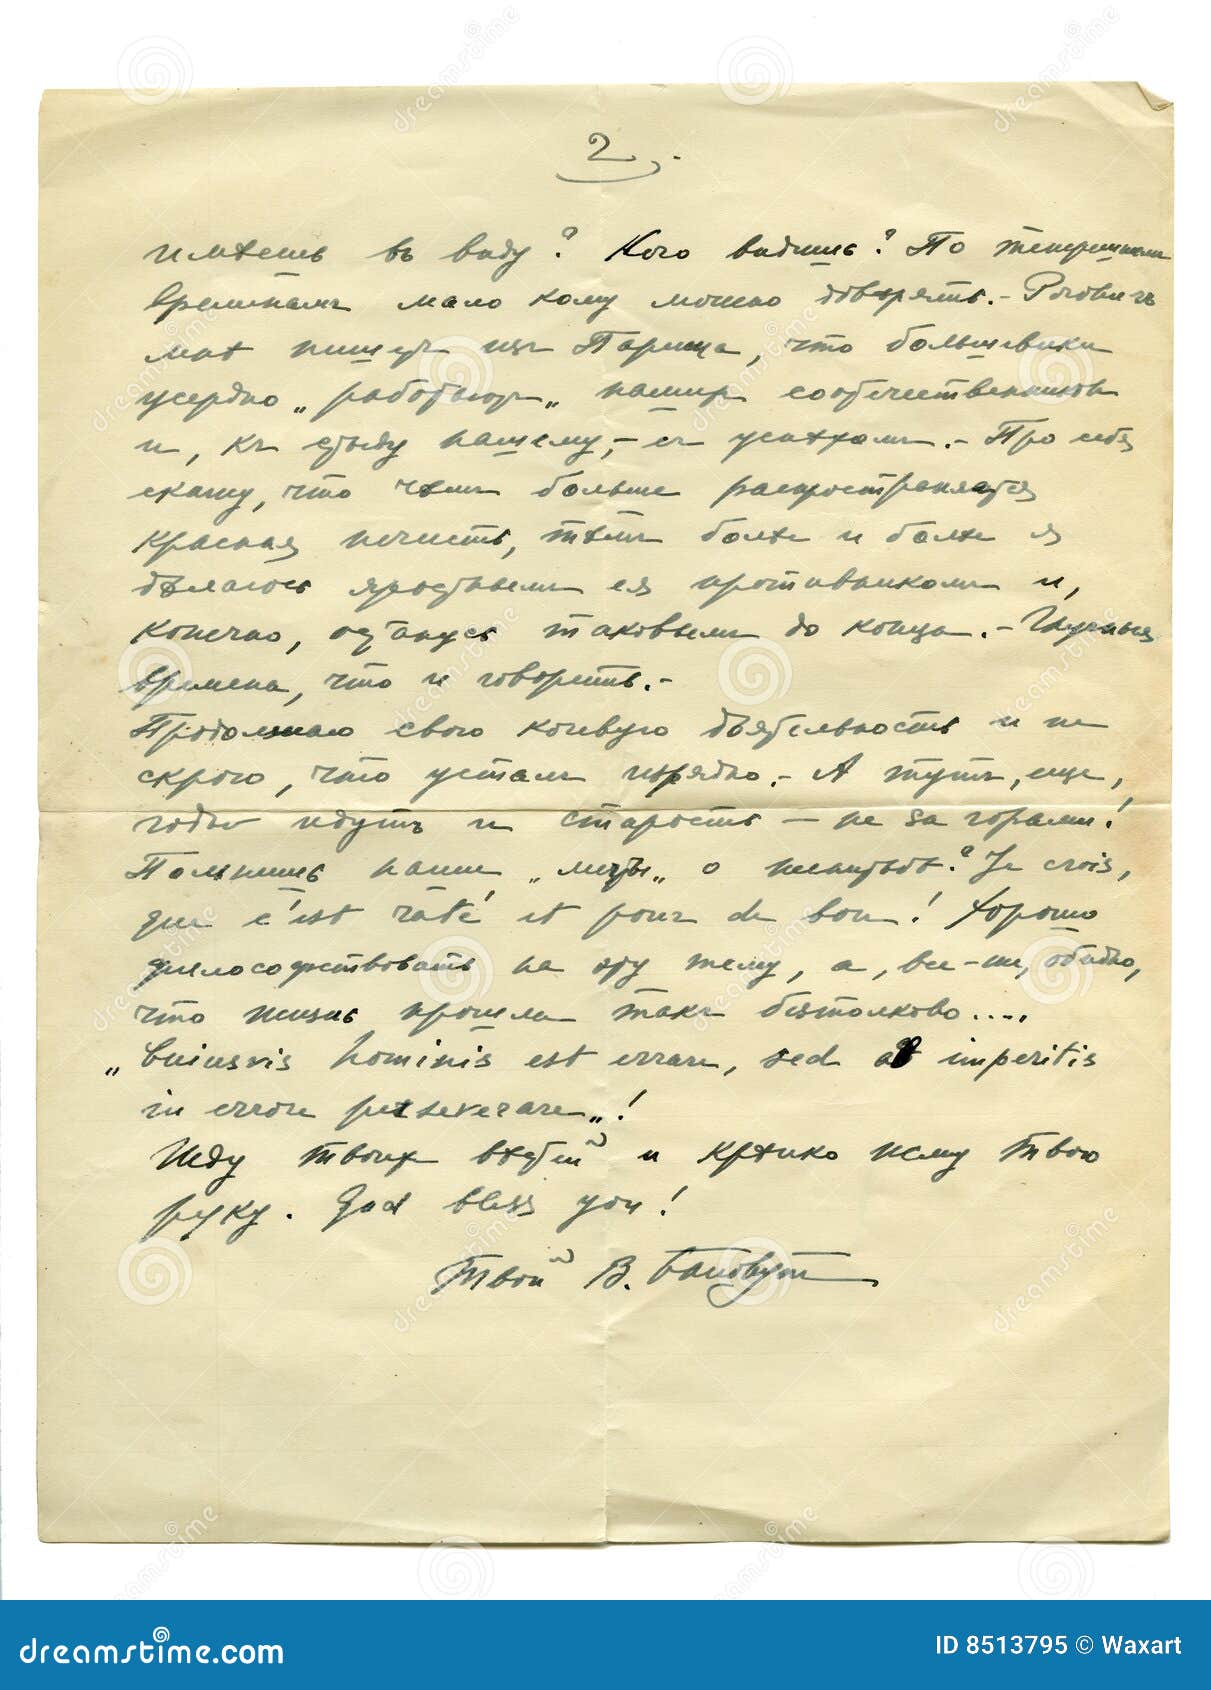 2.
имѣешь въ виду? Кого видишь? По теперешнимъ
временамъ мало кому можно довѣрять.-
мнѣ пишетъ изъ Парижа, что большевики
усердно „работаютъ„ нашихъ соотечественниковъ
и, къ стыду нашему,- съ успѣхомъ.- Про себя
скажу, что чѣмъ больше распространяется
красная нечисть, тѣмъ болѣе и болѣе я
дѣлаюсь яростнымъ ея противникомъ и,
конечно, останусь таковымъ до конца.-
времена, что и говорить.-
Продолжаю свою кочевую дѣятельность и не
скрою, что усталъ изрядно.- А тутъ, еще,
годы идутъ и старость — не за горами!
Помнишь наши „мечты„ о ? Je crois,
que c'est raté et pour de bon! Хорошо
философствовать на эту тему, а, все-же, обидно,
что жизнь прошла такъ безтолково....
„Cuiusvis hominis est errare, sed imperitis
in errore perseverare„!
Жду твоихъ вѣстей и крѣпко жму твою
руку. God bless you!
Твой В.
dreamstime
ID 8513795 © Waxart